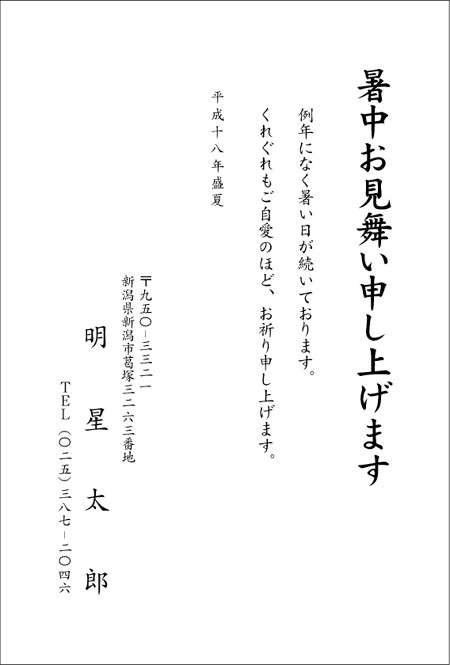 暑中お見舞い申し上げます
例年になく暑い日が続いております。
くれぐれもご自愛のほど、お祈り申し上げます。
平成十八年盛夏
〒九五〇-三三二一
新潟県新潟市葛塚三二六三番地
明星太郎
TEL（〇二五）三八七-二〇四六